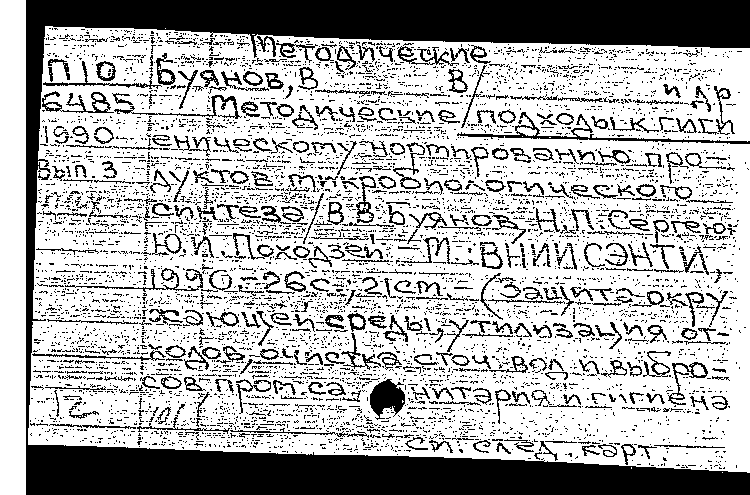 Методические
П10 Буянов, В В и др
6485 Методические подходы к гиги
1990 еническому нормированию про-
Вып. 3 дуктов микробиологического
синтеза / В.В.Буянов, Н.П.Сергеюк
Ю.И.Походзей. - М.: ВНИИСЭНТИ,
1990. - 26с., 21см. - (Защита окру
жающей среды, утилизация от-
ходов, очистка сточ. вод и выбро-
сов пром. са нитария и гигиена
см. след. карт.